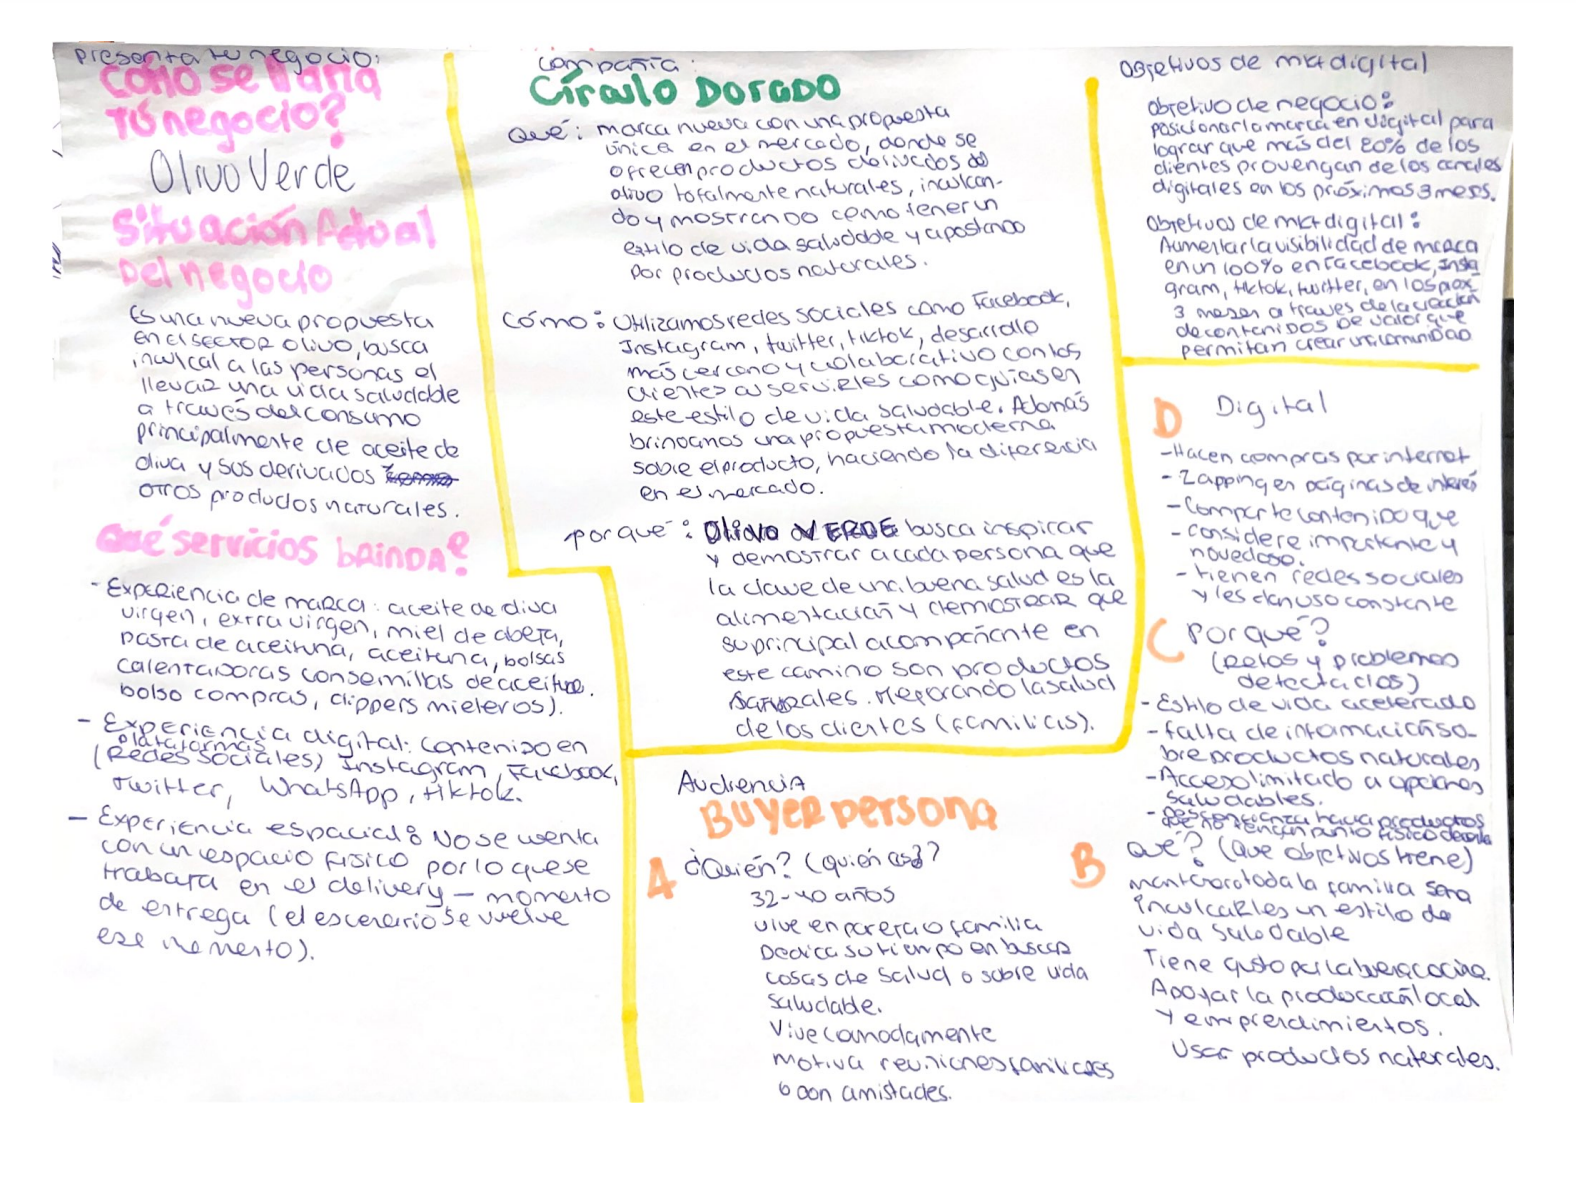 presenta tu negocio:
Cómo se llama
Tú negocio?
Olivo Verde
Situación Actual
Del negocio
Es una nueva propuesta
en el sector olivo, busca
inculcal a las personas el
llevar una vida saludable
a través del consumo
principalmente de aceite de
oliva y sus derivados
otros productos naturales.
Qué servicios brinda?
- Experiencia de marca: aceite de oliva
virgen, extra virgen, miel de abeja,
pasta de aceituna, aceituna, bolsas
calentadoras con semillas de aceituna.
bolso compras, clippers mieleros).
- Experiencia digital: Contenido en
plataformas
(Redes sociales) Instagram, Facebook,
Twitter, WhatsApp, tiktok.
- Experiencia espacial: No se cuenta
con un espacio físico por lo que se
trabara en el delivery - momento
de entrega (el escenario se vuelve
ese memento).
compañía:
Círculo Dorado
Qué: marca nueva con una propuesta
única en el mercado, donde se
ofrecen productos derivados del
olivo totalmente naturales, inculcan-
do y mostrando como tener un
estilo de vida saludable y apostando
por productos naturales.
Cómo: Utilizamos redes sociales como Facebook,
Instagram, twitter, tiktok, desarrollo
más cercano y colaborativo con los
clientes al servirles como guías en
este estilo de vida saludable. Además
brindamos una propuesta moderna
sobre el producto, haciendo la diferencia
en el mercado.
porqué: Olivo VERDE busca inspirar
y demostrar a cada persona que
la clave de una buena salud es la
alimentación y demostrar que
su principal acompañante en
este camino son productos
naturales. Mejorando la salud
de los clientes (familias).
Audiencia
Buyer persona
A ¿Quién? (quién es)?
32-40 años
vive en pareja o familia
Dedica su tiempo en buscar
cosas de salud o sobre vida
saludable.
Vive comodamente
motiva reuniones familiares
o con amistades.
Objetivos de mkt digital
objetivo de negocio:
posicionar la marca en digital para
lograr que más del 80% de los
clientes provengan de los canales
digitales en los próximos 3 meses.
Objetivos de mkt digital:
Aumentar la visibilidad de marca
en un 100% en Facebook, Insta
gram, tiktok, twitter, en los prox.
3 meses a traves de la creación
de contenidos de valor que
permitan crear una comunidad
D Digital
- Hacen compras por internet
- Zapping en páginas de interés
- Comparte contenido que
- considere importante y
novedoso.
- tienen redes sociales
y les dan uso constante
C Porqué?
(Retos y problemas
detectados)
- Estilo de vida acelerado
- falta de información so-
bre productos naturales
- Acceso limitado a opciones
saludables.
- Desconfianza hacia productos
que no tengan punto físico de
B Qué? (Que objetivos tiene)
mantener a toda la familia sana
Inculcarles un estilo de
vida saludable
Tiene gusto por la buena cocina.
Apoyar la producción local
y emprendimientos.
Usar productos naturales.